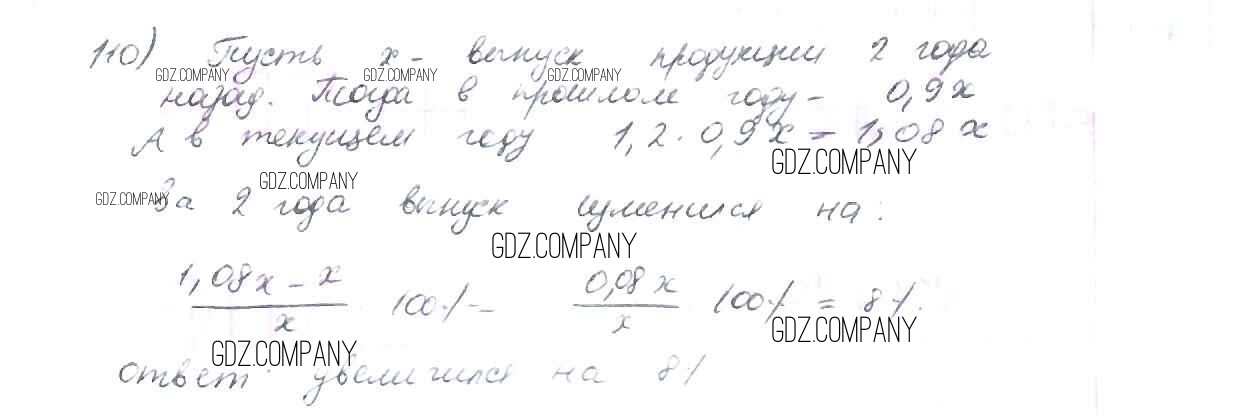 110) Пусть x - выпуск продукции 2 года
GDZ.COMPANY GDZ.COMPANY GDZ.COMPANY
назад. Тогда в прошлом году - 0,9x
А в текущем году 1,2 · 0,9x = 1,08x
GDZ.COMPANY
GDZ.COMPANY
GDZ.COMPANY За 2 года выпуск изменился на:
GDZ.COMPANY
1,08x - x / x 100% = 0,08x / x 100% = 8%.
GDZ.COMPANY
GDZ.COMPANY
ответ: увеличился на 8%